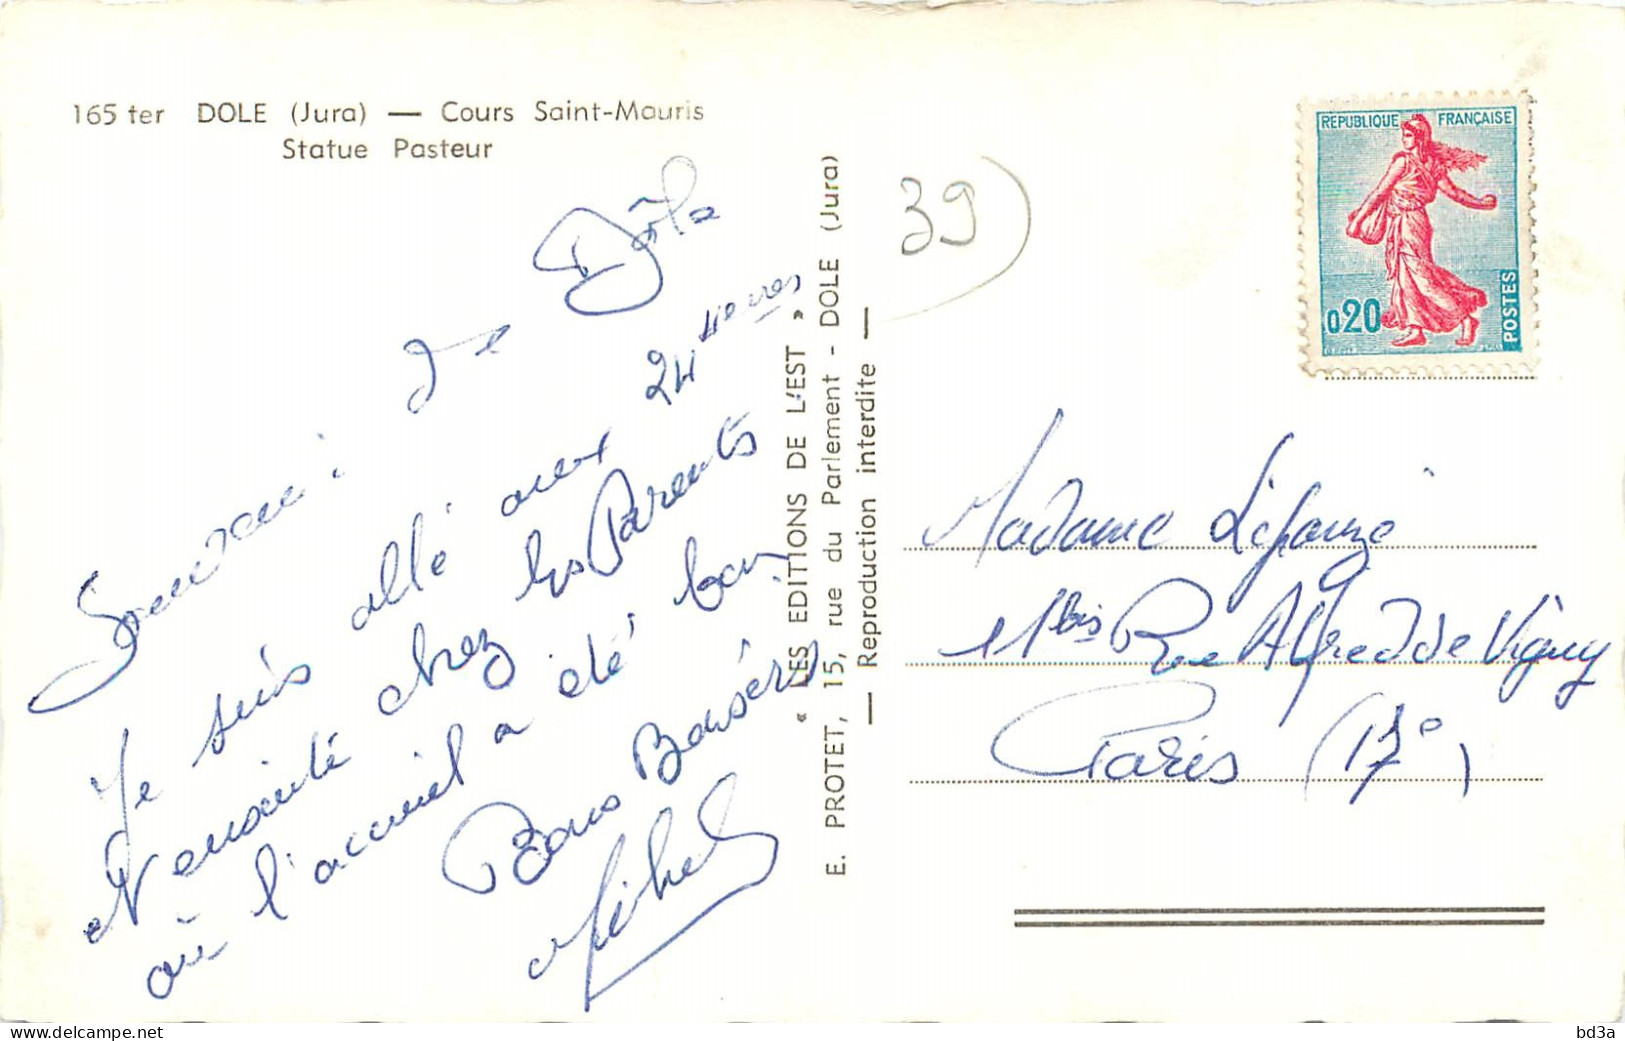 165 ter DOLE (Jura) — Cours Saint-Mauris
Statue Pasteur
Souvenir
de Dôle
Je suis allé aux 24 Heures
chez les Parents
où l'accueil a été bon
Bons Baisers
Michel
« LES EDITIONS DE L'EST »
E. PROTET, 15, rue du Parlement - DOLE (Jura)
— Reproduction interdite —
39
REPUBLIQUE FRANÇAISE
0,20
POSTES
Madame
11bis Rue Alfred de Vigny
Paris (17e)
www.delcampe.net
bd3a